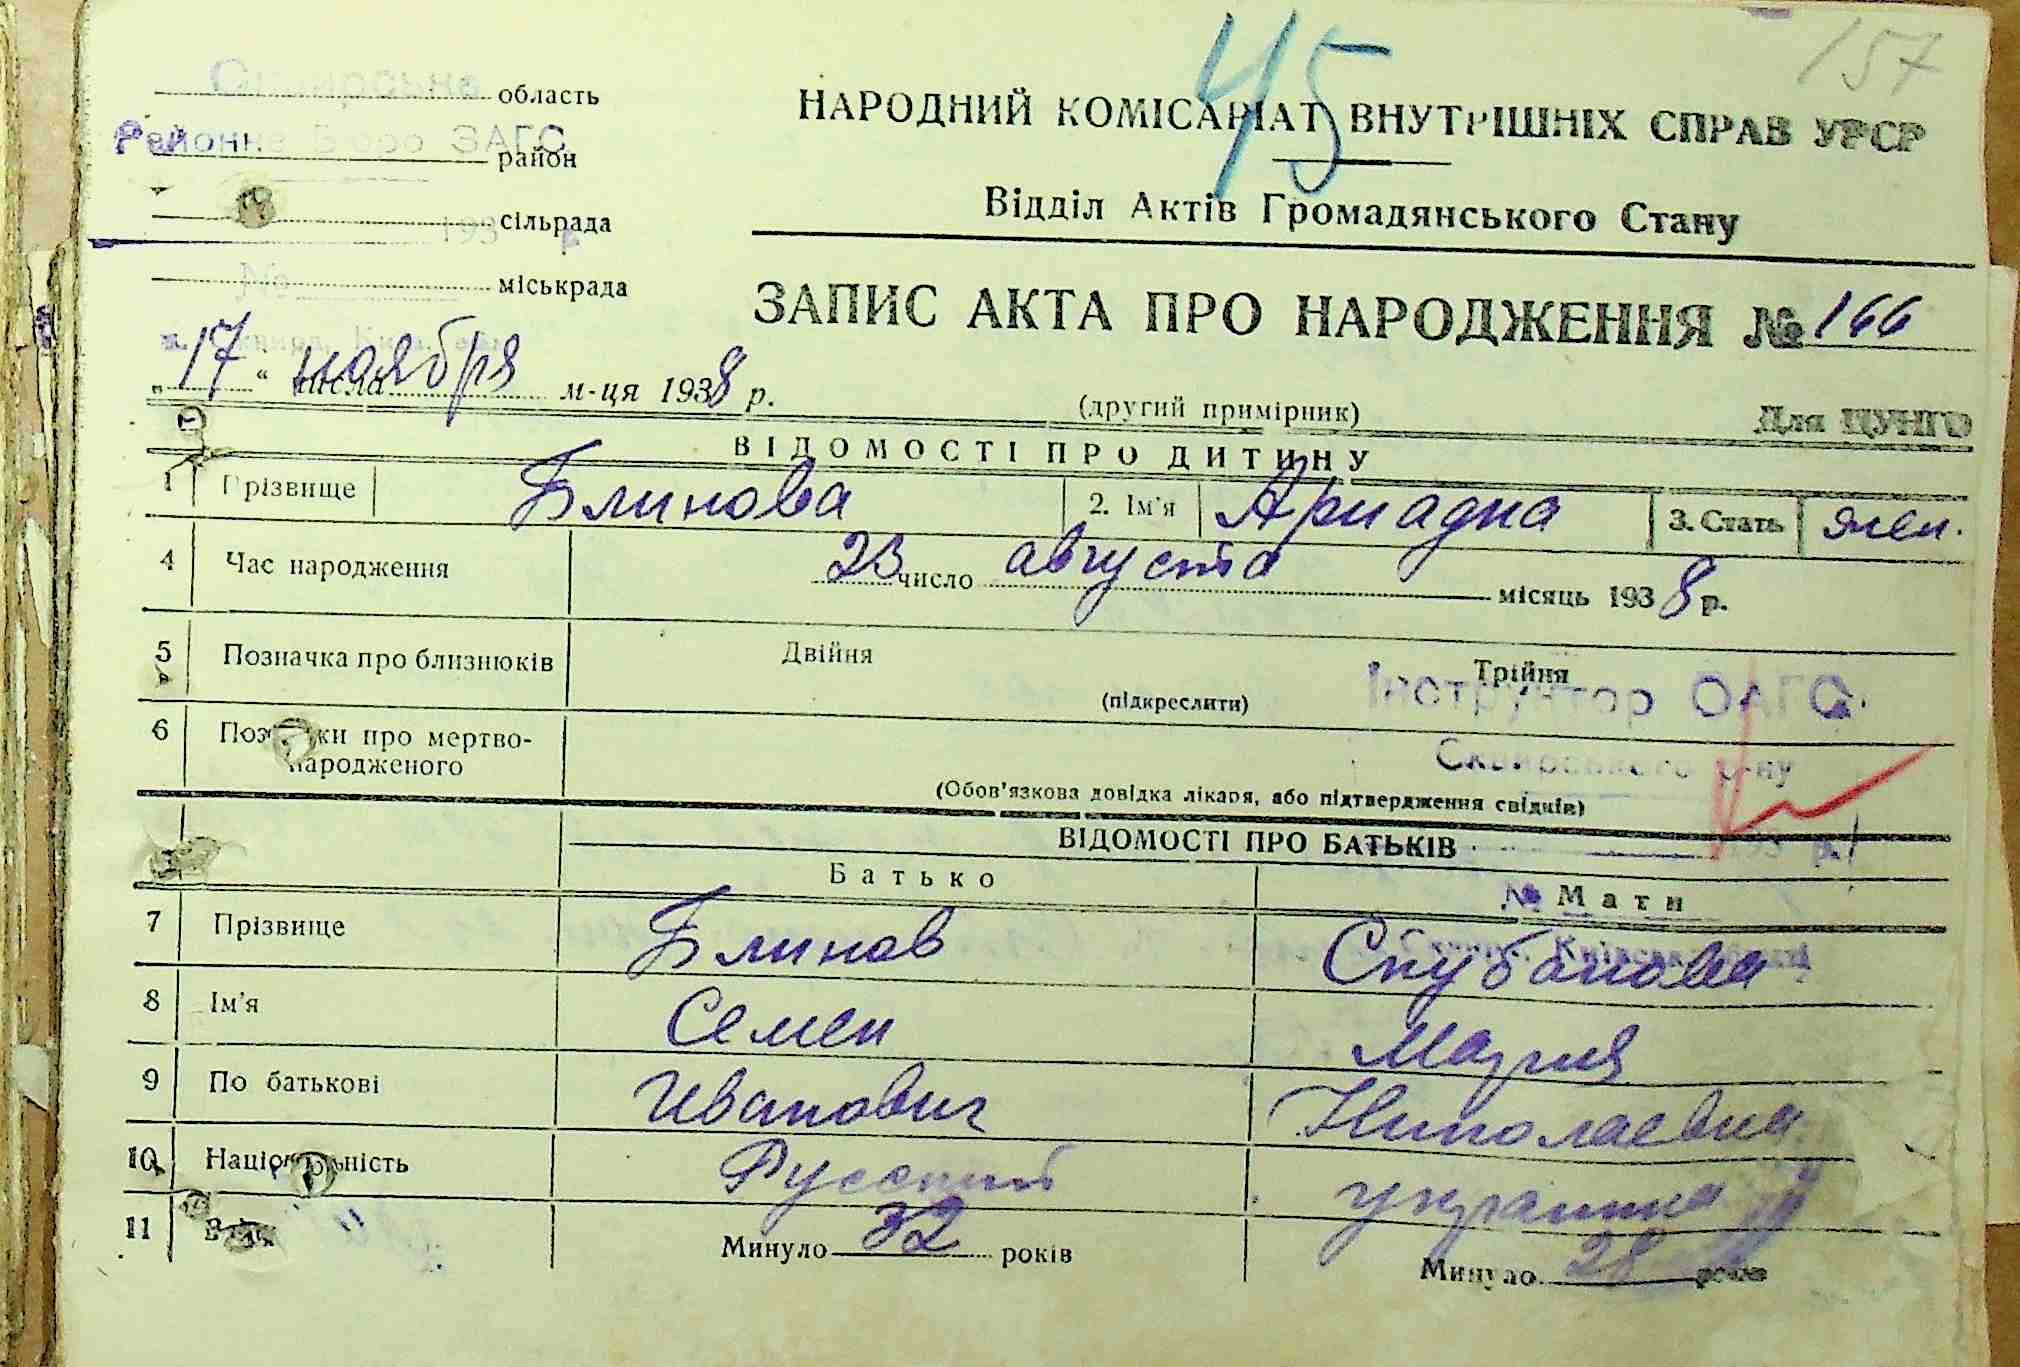 45
157
область
Районне Бюро ЗАГС
район
сільрада
193 р.
міськрада
№
НАРОДНИЙ КОМІСАРІАТ ВНУТРІШНІХ СПРАВ УРСР
Відділ Актів Громадянського Стану
ЗАПИС АКТА ПРО НАРОДЖЕННЯ № 166
„17“ числа ноября м-ця 1938 р.
(другий примірник)
Для ЦУНГО
ВІДОМОСТІ ПРО ДИТИНУ
1 Прізвище Блинова 2. Ім'я Ариадна 3. Стать жен.
4 Час народження 23 число августа місяць 1938 р.
5 Позначка про близнюків Двійня Трійня
(підкреслити)
Інструктор ОАГС
6 Позначки про мертво-
народженого
Сквирського р-ну
(Обов'язкова довідка лікаря, або підтвердження свідків)
ВІДОМОСТІ ПРО БАТЬКІВ
193 р.
Батько № Мати
7 Прізвище Блинов
8 Ім'я Семен Мария
9 По батькові Иванович Николаевна
10 Національність Русский украинка
11 Вік Минуло 32 років Минуло 28 років